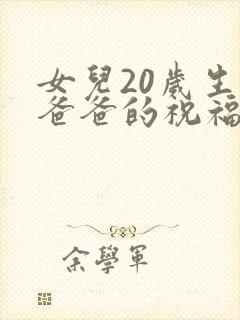 女兒20歲生
爸爸的祝福
余學軍